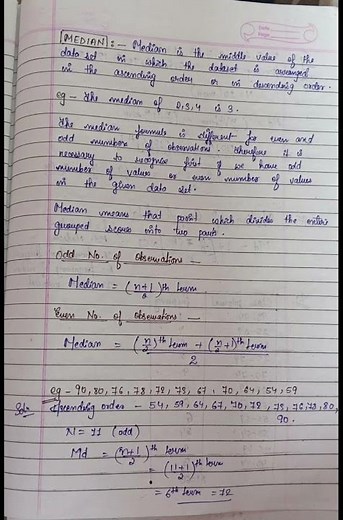 MEDIAN : - Median is the middle value of the
data set in which the dataset is arranged
in the ascending order or in descending order.
eg - the median of 2,3,4 is 3.
The median formula is different for even and
odd numbers of observations. Therefore it is
necessary to recognise first if we have odd
number of values or even number of values
in the given data set.
Median means that point which divides the entire
grouped scores into two parts.
Odd No. of Observations -
Median = (n+1/2)th term
Even No. of Observations -
Median = (n/2)th term + (n/2+1)th term
2
eg - 90, 80, 76, 78, 72, 73, 67, 70, 64, 54, 59
Soln Ascending order - 54, 59, 64, 67, 70, 72, 73, 76, 78, 80,
90.
N = 11 (odd)
Md = (n+1/2)th term
= (11+1/2)th term
= 6th term = 72